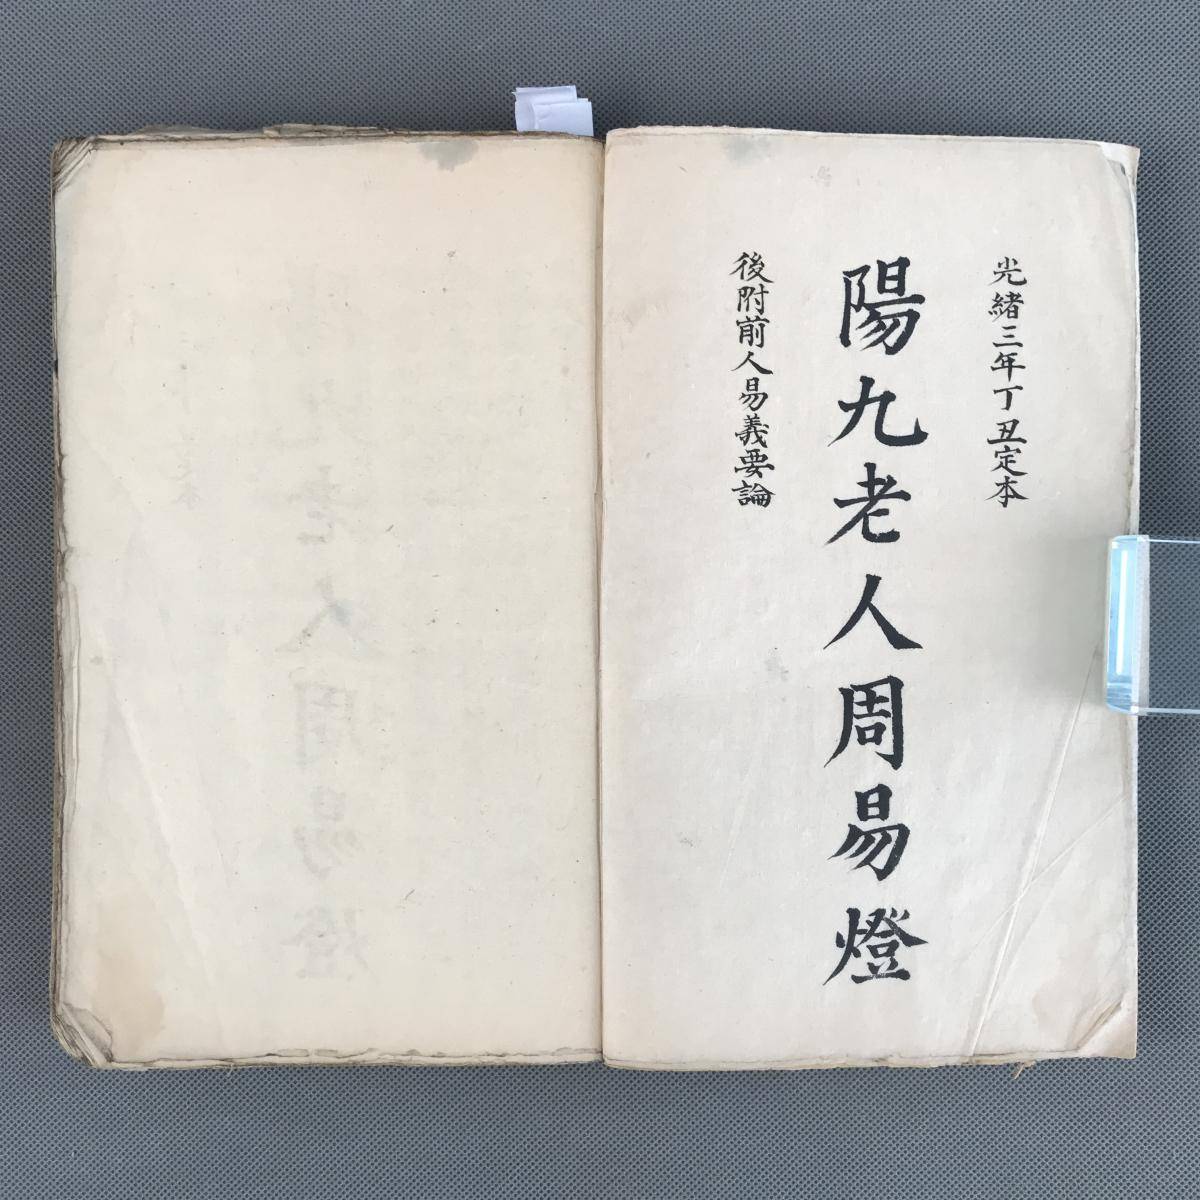 光緒三年丁丑定本
陽九老人周易燈
後附前人易義要論